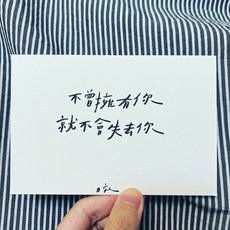 不曾擁有你
就不會失去你